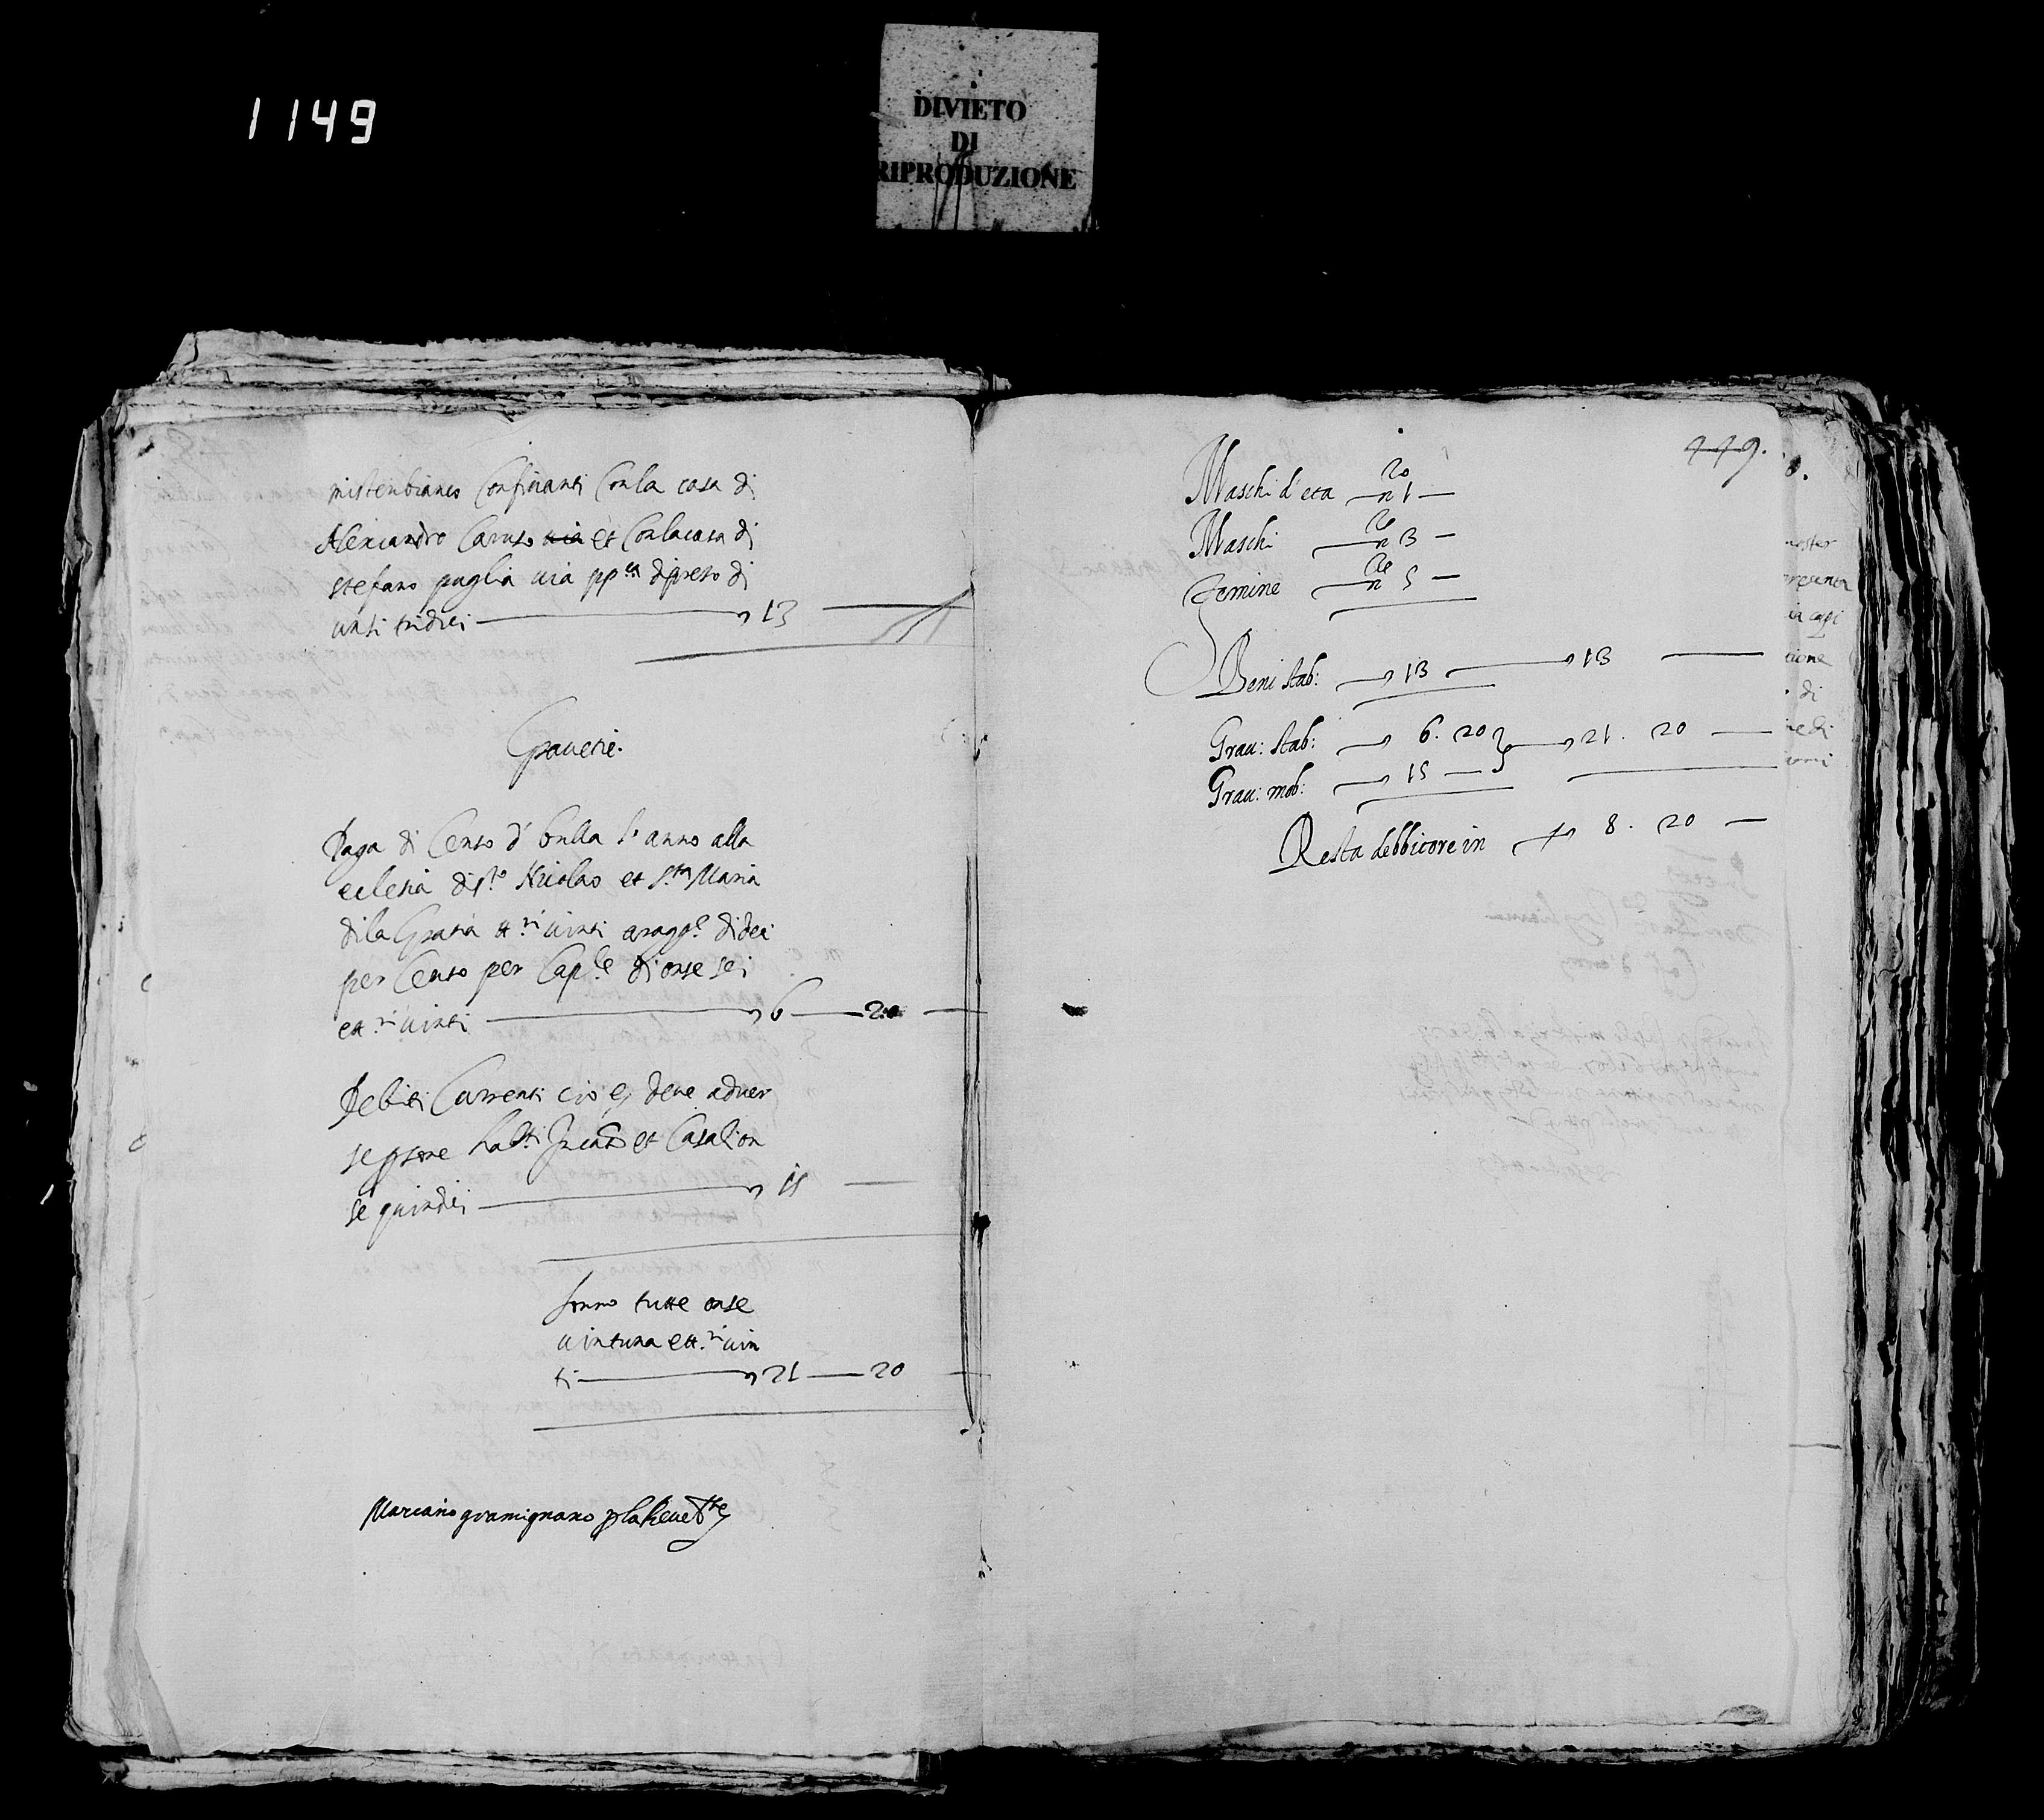 1149
DIVIETO
DI
RIPRODUZIONE
mistenbianco Confinanti Con la casa di
Alexandro Caruso uia et Con la casa di
stefano puglia uia pp.ca di preso di
unsi tridici 13
Grauetie.
Paga di Censo di bulla l'anno alla
eclesia di s.to Nicolao et S.ta Maria
di la Gratia tt.rì uinti a ragg.e di deci
per Cento per Cap.le di onse sei
et tt.rì uinti 6 20
Debiti Currenti cio e, deve a diuer
se psone et Casali on
se quindici 15
sonno tutte onse
uintuna et tt.rì uin
ti 21 20
Marciano gramignano p la Reue
449.
Maschi d'eta n 1
20
Maschi n 3
Femine n 5
Beni stab: 13 13
Grau: stab: 6. 20 21. 20
Grau: mob: 15
Resta debbitore in 8. 20